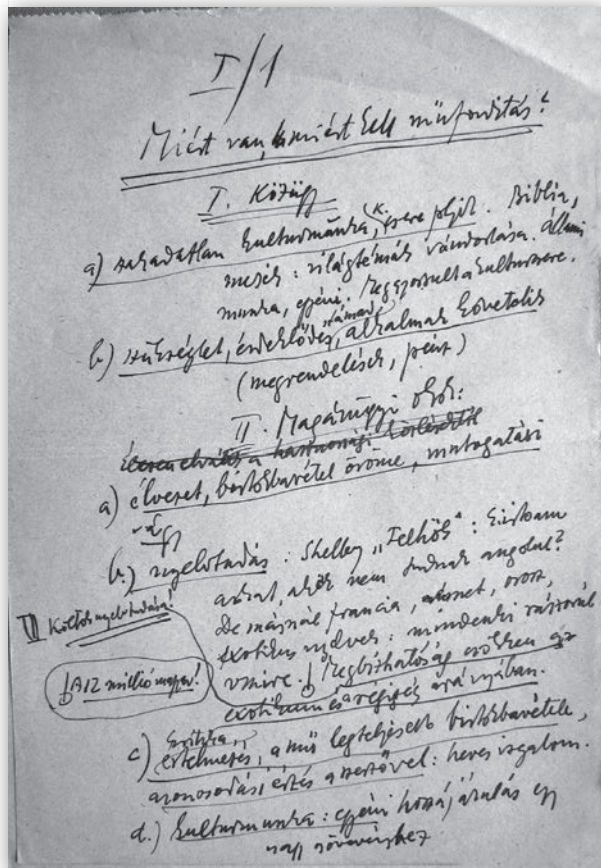 I/1
Miért van, s miért kell műfordítás?
I. Közügy
a) szakadatlan kulturmunka, k. csere folyik. Biblia,
mesék: világtémák vándorlása. Állami
munka, egyéni. Meggyorsult a kulturcsere.
b) szükséglet, érdeklődés támad, alkalmak követelik
(megrendelések, pénz)
II. Magánügyi okok:
a) élvezet, birtokbavétel öröme, mutogatási
vágy
b.) nyelvtudás: Shelley „Felhők":
azokat, akik nem tudnak angolul?
De másnál francia, német, orosz,
exotikus nyelvek: mindenki rászorul
vmire. Megbízhatóság csökken az
exotikum és régiség arányában.
III Költők nyelvtudása!
A 12 millió magyar!
c) kritika, értelmezés, a mű legteljesebb birtokbavétele,
azonosodási érzés a szerzővel: heves izgalom.
d.) kulturmunka: egyéni hozzájárulás egy
nagy növényhez